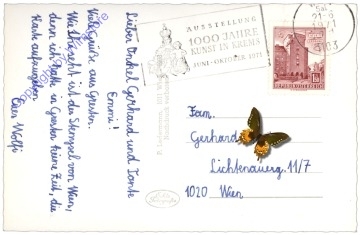 Lieber Onkel Gerhard und Tante
Emmi!
Viele Grüße aus Gresten.
Was täuscht ist der Stempel von Wien,
denn ich hatte in Gresten keine Zeit, die
Karte aufzugeben.
Euer Wolfi
AUSSTELLUNG
1000 JAHRE
KUNST IN KREMS
JUNI-OKTOBER 1971
1971
1103
REPUBLIK ÖSTERREICH
Fam.
Gerhard
Lichtenauerg. 11/7
1020 Wien